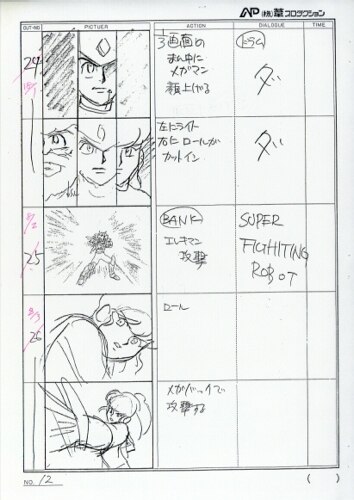 AP (株)葦プロダクション
CUT-NO
PICTUER
ACTION
DIALOGUE
TIME
24
1/3画面の
まん中に
メガマン
顔上げる
ダ
左にライト
右にロールが
カットイン
ダ
25
BANK
エレキマン
攻撃
SUPER
FIGHITING
ROBOT
26
ロール
メガバックで
攻撃する
NO. 12
( )